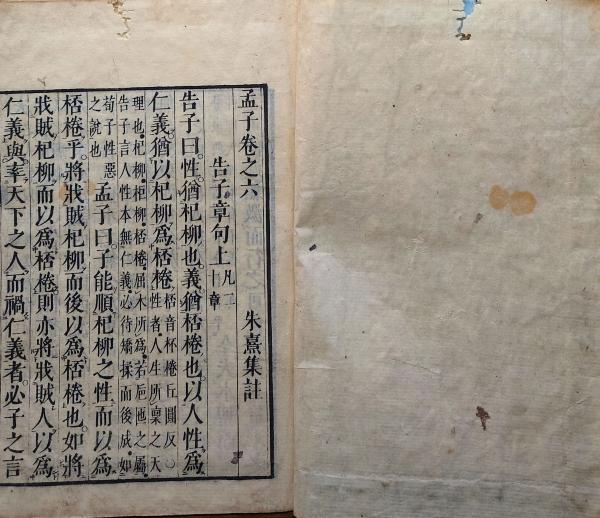 孟子卷之六
朱熹集註
告子章句上 凡二十章
告子曰性猶杞柳也義猶桮棬也以人性爲
仁義猶以杞柳爲桮棬 桮音杯棬丘圓反○性者人生所稟之天
理也杞柳柜柳桮棬屈木所爲若巵匜之屬
告子言人性本無仁義必待矯揉而後成如
荀子性惡之說也 孟子曰子能順杞柳之性而以爲
桮棬乎將戕賊杞柳而後以爲桮棬也如將
戕賊杞柳而以爲桮棬則亦將戕賊人以爲
仁義與率天下之人而禍仁義者必子之言